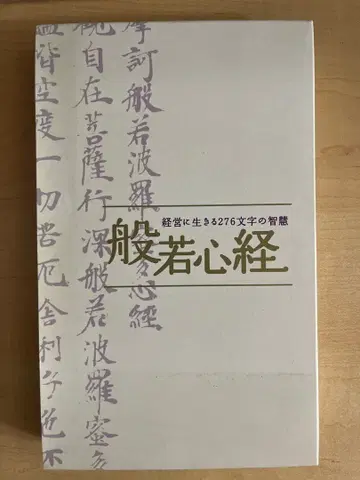 経営に生きる276文字の智慧
般若心経
摩訶般若波羅蜜多心經
観自在菩薩行深般若波羅蜜多
蘊皆空度一切苦厄舎利子色不